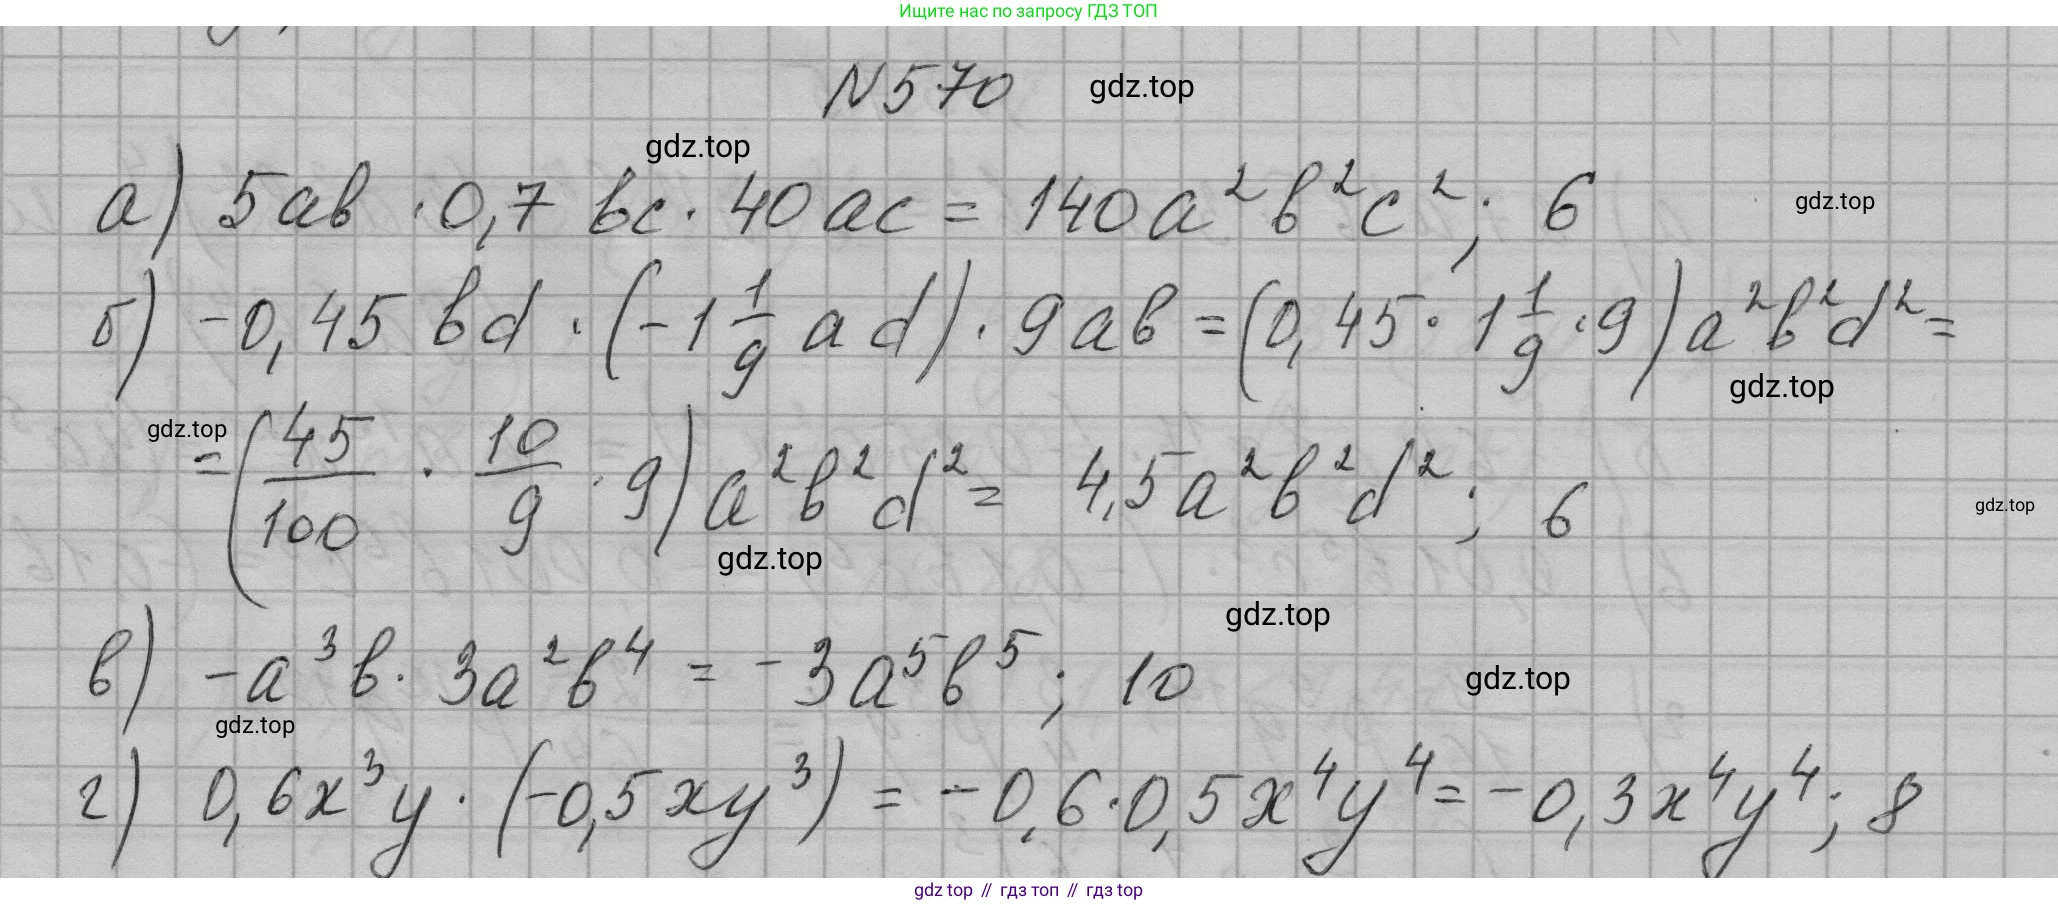 Ищите нас по запросу ГДЗ ТОП
N570 gdz.top
gdz.top
а) 5ab · 0,7 bc · 40ac = 140a²b²c²; 6 gdz.top
б) -0,45 bd · (-1 1/9 ad) · 9ab = (0,45 · 1 1/9 · 9) a²b²d² =
gdz.top
gdz.top
= (45/100 · 10/9 · 9) a²b²d² = 4,5a²b²d²; 6
gdz.top
gdz.top
gdz.top
в) -a³b · 3a²b⁴ = -3a⁵b⁵; 10 gdz.top
gdz.top
г) 0,6x³y · (-0,5xy³) = -0,6·0,5x⁴y⁴ = -0,3x⁴y⁴; 8
gdz top // гдз топ // gdz top